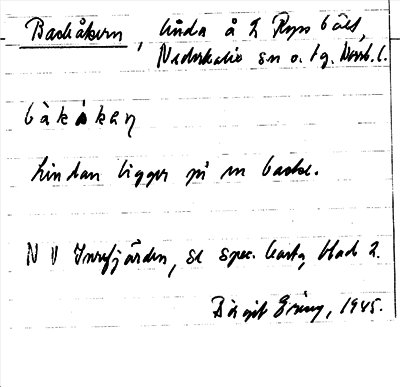 Backåkern, linda å 2 Ryss bäck,
Nederkalix sn o. tg. Norrb. l.
bàkåkaɳ
Lindan ligger på en backe.
N V Innefjärden, se spec. karta, blad 2.
Birgit Eriny, 1945.